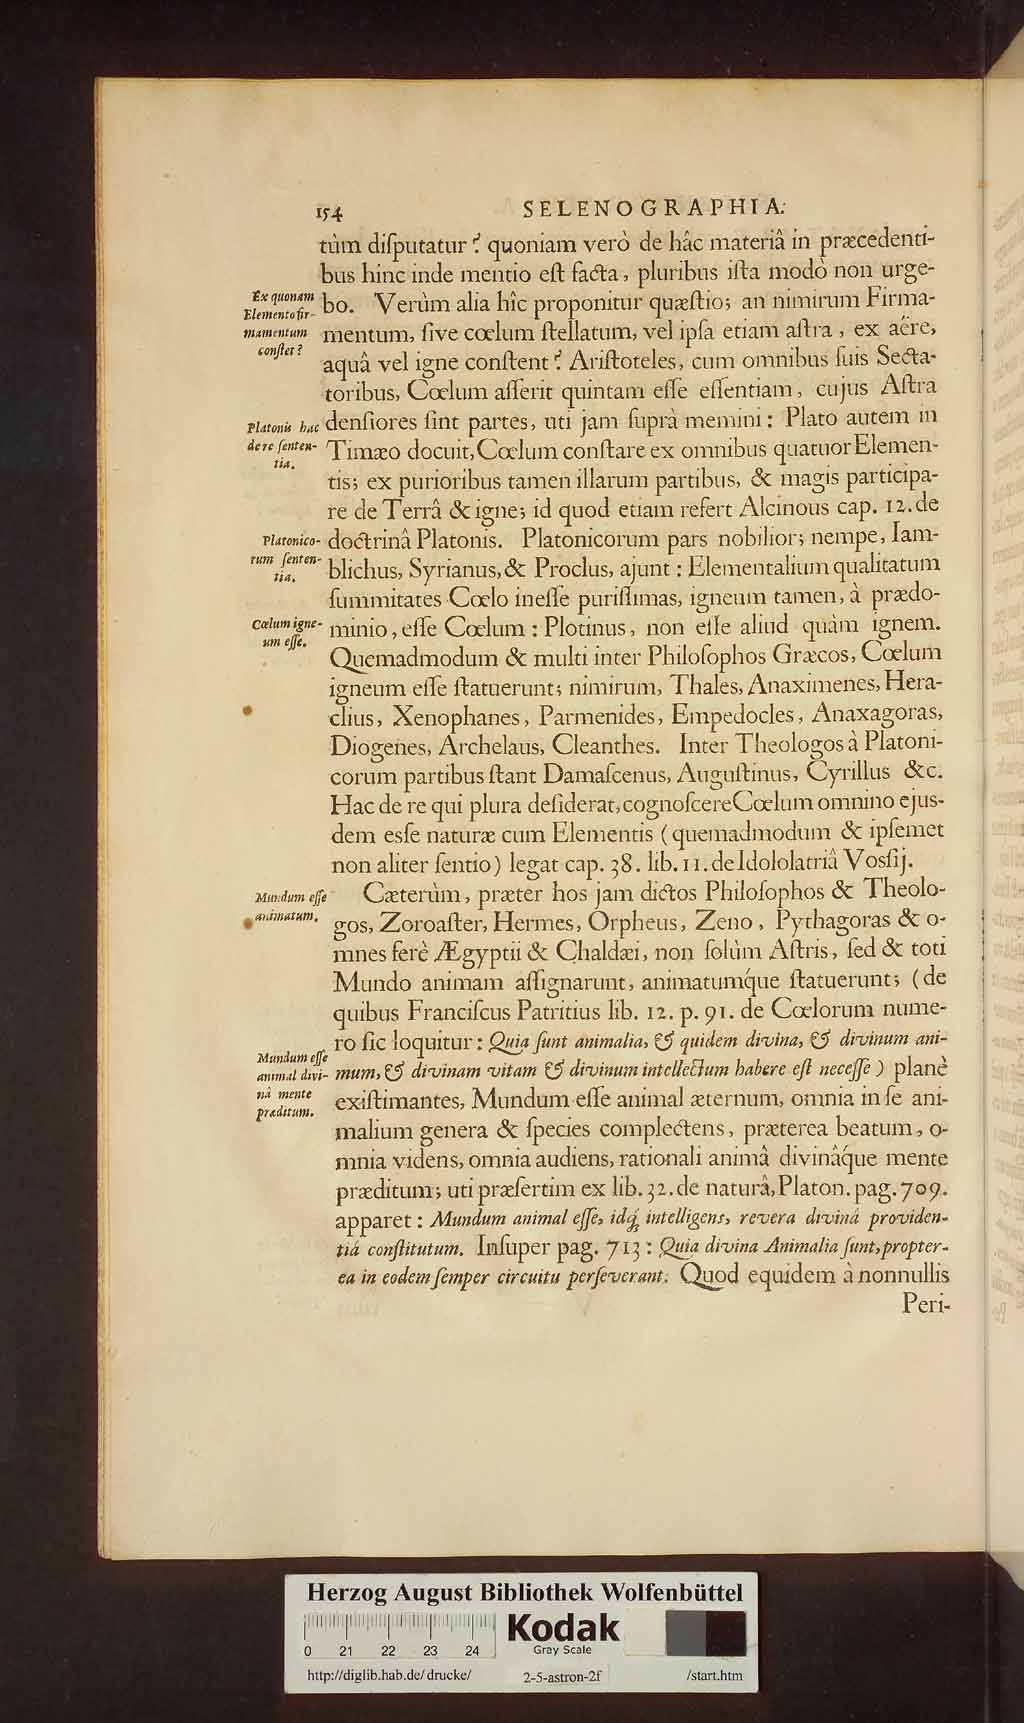 154 SELENOGRAPHIA.
tùm diſputatur? quoniam verò de hâc materiâ in præcedenti-
bus hinc inde mentio eſt facta, pluribus iſta modò non urge-
Ex quonam Elemento fir- mamentum conſtet?
bo. Verùm alia hîc proponitur quæſtio; an nimirum Firma-
mentum, ſive cœlum ſtellatum, vel ipſa etiam aſtra, ex aëre,
aquâ vel igne conſtent? Ariſtoteles, cum omnibus ſuis Secta-
toribus, Cœlum aſſerit quintam eſſe eſſentiam, cujus Aſtra
Platonis hac de re ſenten- tia.
denſiores ſint partes, uti jam ſuprà memini: Plato autem in
Timæo docuit, Cœlum conſtare ex omnibus quatuor Elemen-
tis; ex purioribus tamen illarum partibus, & magis participa-
re de Terrâ & igne; id quod etiam refert Alcinous cap. 12. de
Platonico- rum ſenten- tia.
doctrinâ Platonis. Platonicorum pars nobilior; nempe, Iam-
blichus, Syrianus, & Proclus, ajunt: Elementalium qualitatum
ſummitates Cœlo ineſſe puriſſimas, igneum tamen, à prædo-
Cœlum igne- um eſſe.
minio, eſſe Cœlum: Plotinus, non eſſe aliud quàm ignem.
Quemadmodum & multi inter Philoſophos Græcos, Cœlum
igneum eſſe ſtatuerunt; nimirum, Thales, Anaximenes, Hera-
clius, Xenophanes, Parmenides, Empedocles, Anaxagoras,
Diogenes, Archelaus, Cleanthes. Inter Theologos à Platoni-
corum partibus ſtant Damaſcenus, Auguſtinus, Cyrillus &c.
Hac de re qui plura deſiderat, cognoſcere Cœlum omnino ejus-
dem esſe naturæ cum Elementis (quemadmodum & ipſemet
non aliter ſentio) legat cap. 38. lib. 11. de Idololatriâ Vosſij.
Mundum eſſe animatum.
Cæterùm, præter hos jam dictos Philoſophos & Theolo-
gos, Zoroaſter, Hermes, Orpheus, Zeno, Pythagoras & o-
mnes ferè Ægyptii & Chaldæi, non ſolùm Aſtris, ſed & toti
Mundo animam aſſignarunt, animatumq́ue ſtatuerunt; (de
quibus Franciſcus Patritius lib. 12. p. 91. de Cœlorum nume-
Mundum eſſe animal divi- nâ mente præditum.
ro ſic loquitur: Quia ſunt animalia, & quidem divina, & divinum ani-
mum, & divinam vitam & divinum intellectum habere eſt neceſſe) planè
exiſtimantes, Mundum eſſe animal æternum, omnia in ſe ani-
malium genera & ſpecies complectens, præterea beatum, o-
mnia videns, omnia audiens, rationali animâ divinâq́ue mente
præditum; uti præſertim ex lib. 32. de naturâ, Platon. pag. 709.
apparet: Mundum animal eſſe, idq́; intelligens, revera divinâ providen-
tiâ conſtitutum. Inſuper pag. 713: Quia divina Animalia ſunt, propter-
ea in eodem ſemper circuitu perſeverant. Quod equidem à nonnullis
Peri-
Herzog August Bibliothek Wolfenbüttel
0 21 22 23 24
Kodak
Gray Scale
http://diglib.hab.de/drucke/ 2-5-astron-2f /start.htm